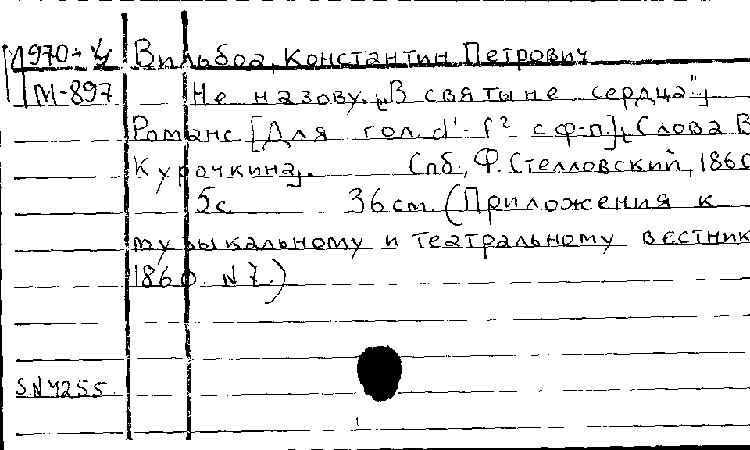 М970-4 Вильбоа, Константин Петрович
М-897 Не назову. „В святыне сердца",
Романс [Для гол. d'- f² с ф-п], Слова В
Курочкина,. Спб., Ф. Стелловский, 1860
5с 36см. (Приложения к
музыкальному и театральному вестник
1860. N 7.)
SN4255